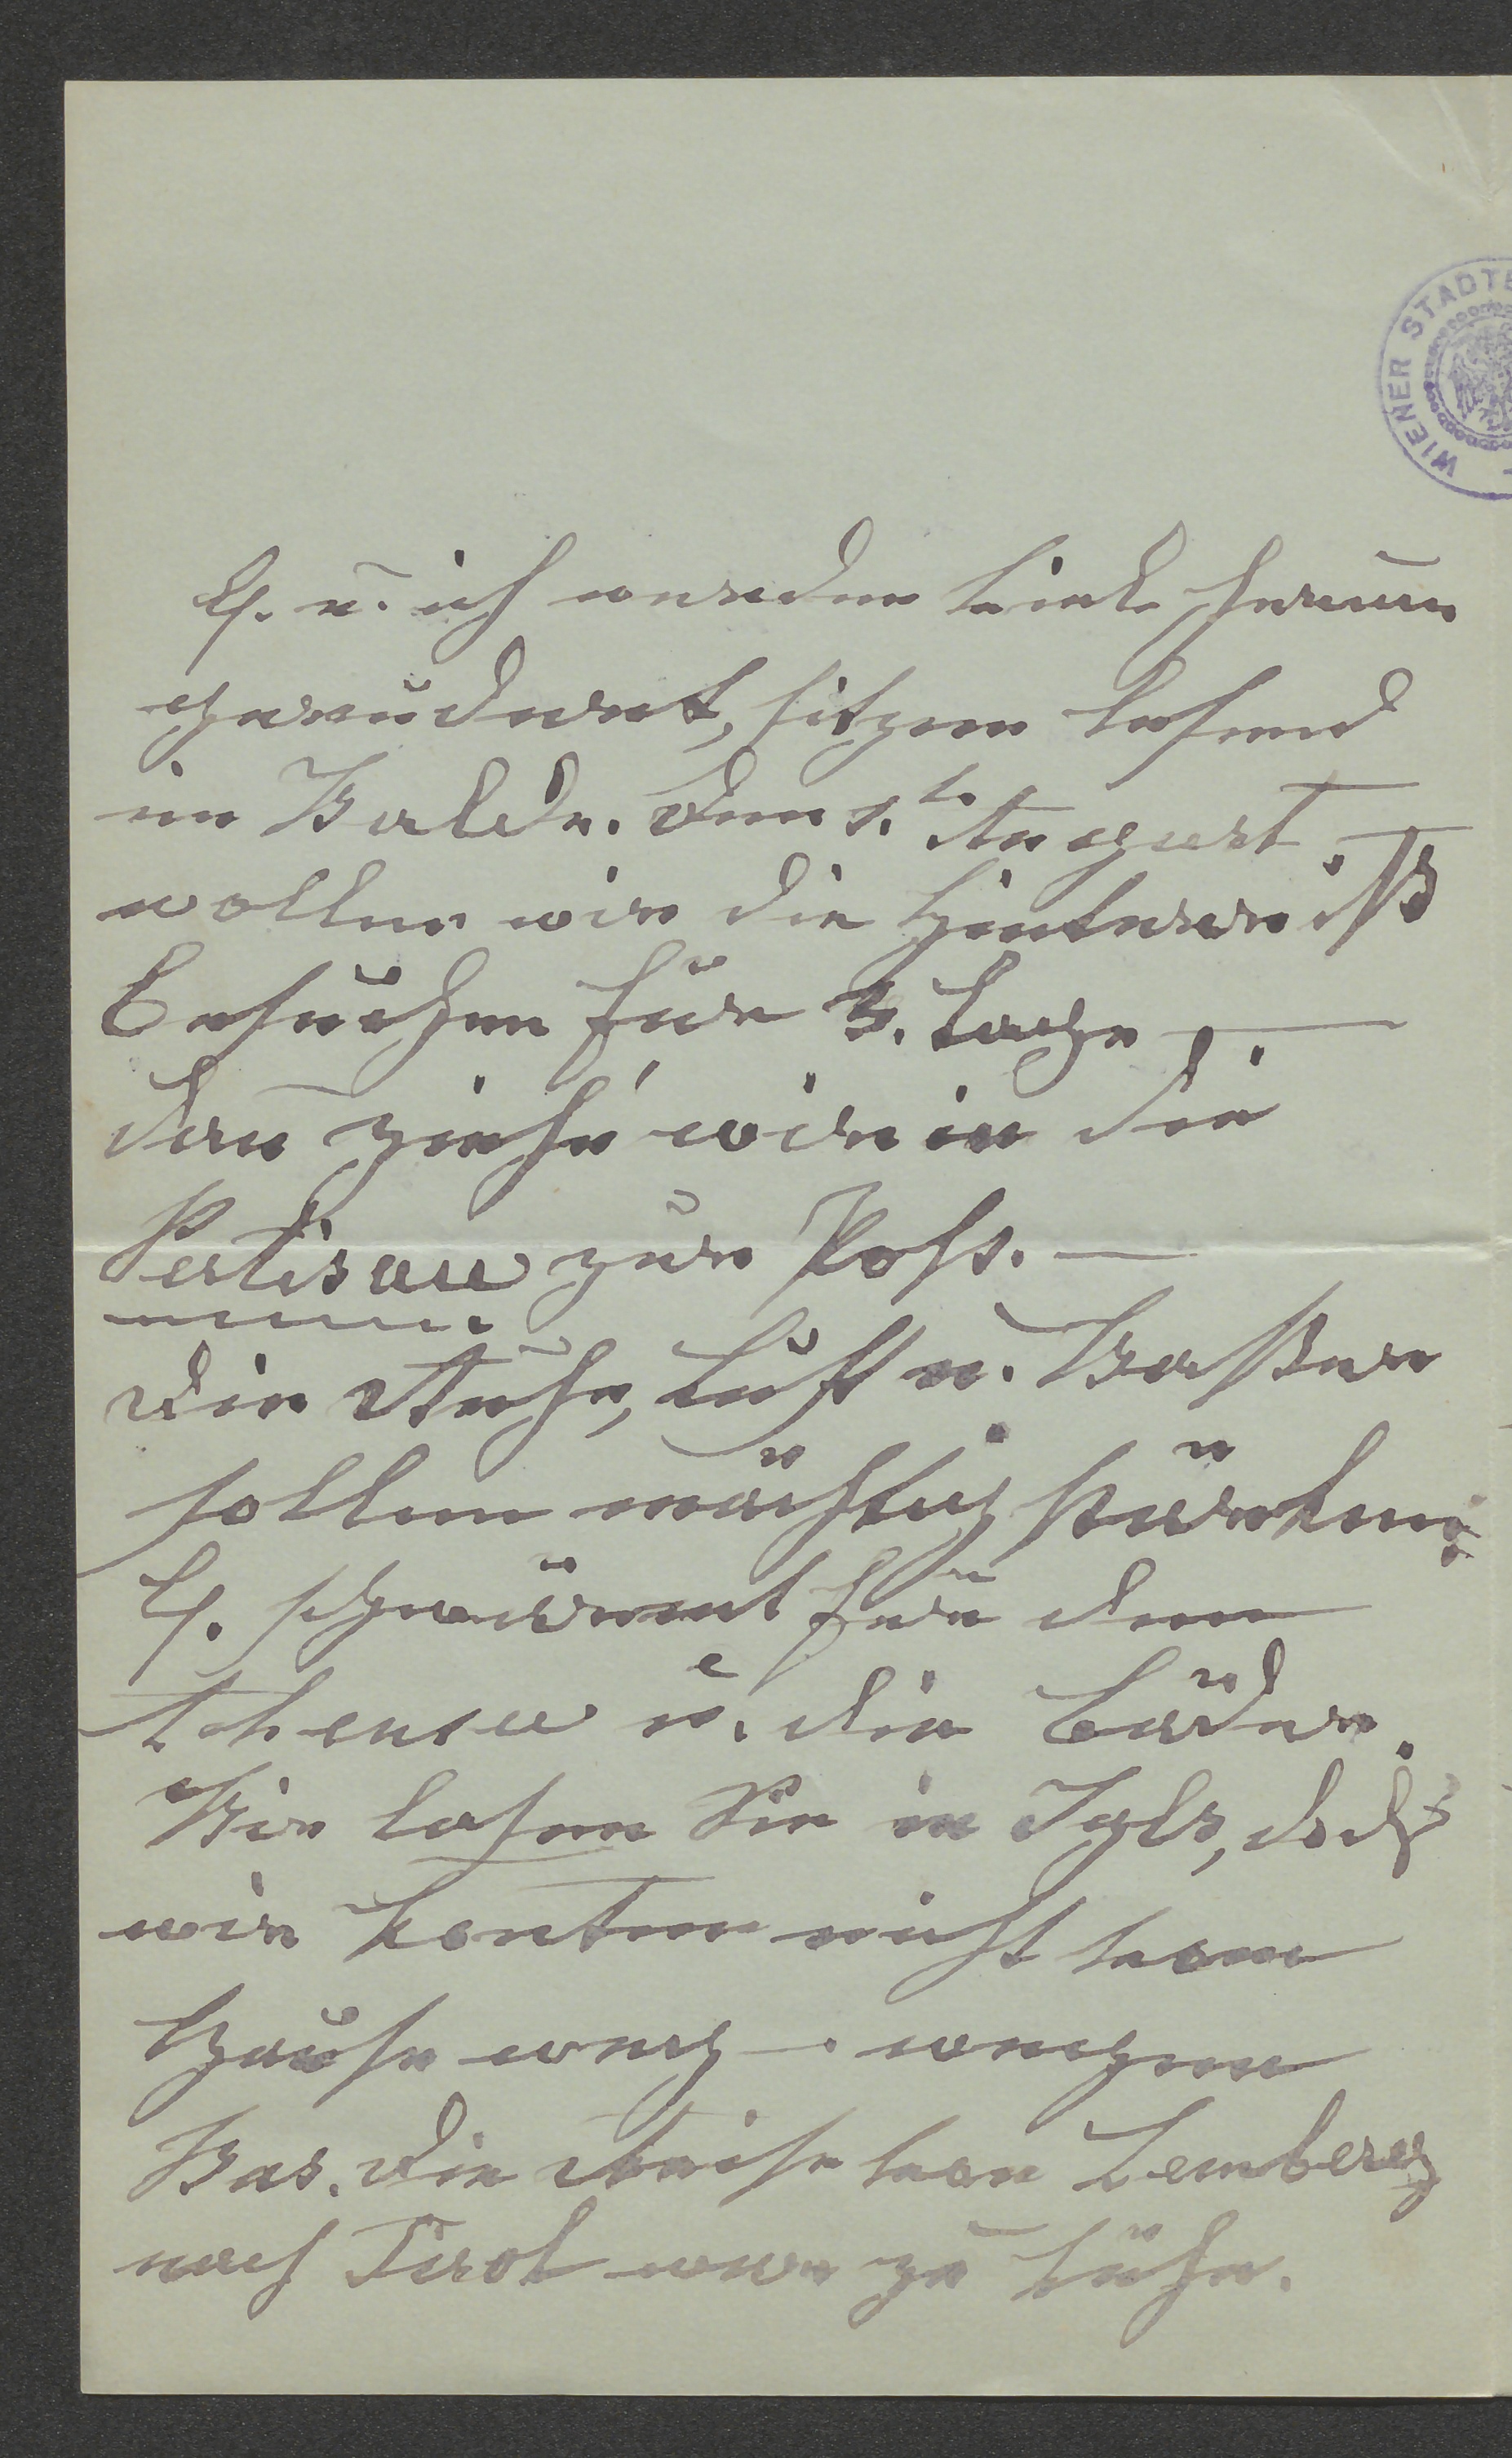 WIENER STADTB
E. u. ich werden viel herum
gerudert, sitzen lesend
im Walde. Den 1.t. August
wollen wir die Hinterriß
besuchen für 3. Tage —
dan̄ ziehn wir in die
Pertisau zur Post. —
Die Ruhe, Luft u. Waßer
sollen mächtig stärken;
E. schwärmt für den
Achensee u. die Bäder.
Wir lasen Sie in Igls, doch
wir konten nicht von
Hause weg —. wegen
Was. Die Reise von Lemberg
nach Tirol war zu kühn.